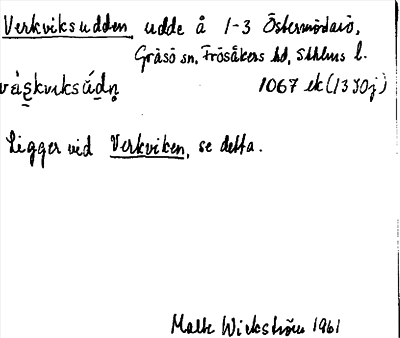 Verkviksudden, udde å 1-3 Östermörtarö,
Gräsö sn, Frösåkers hd, Sthlms l.
1067 ek (13I0j)
Ligger vid Verkviken, se detta.
Malte Wickström 1961